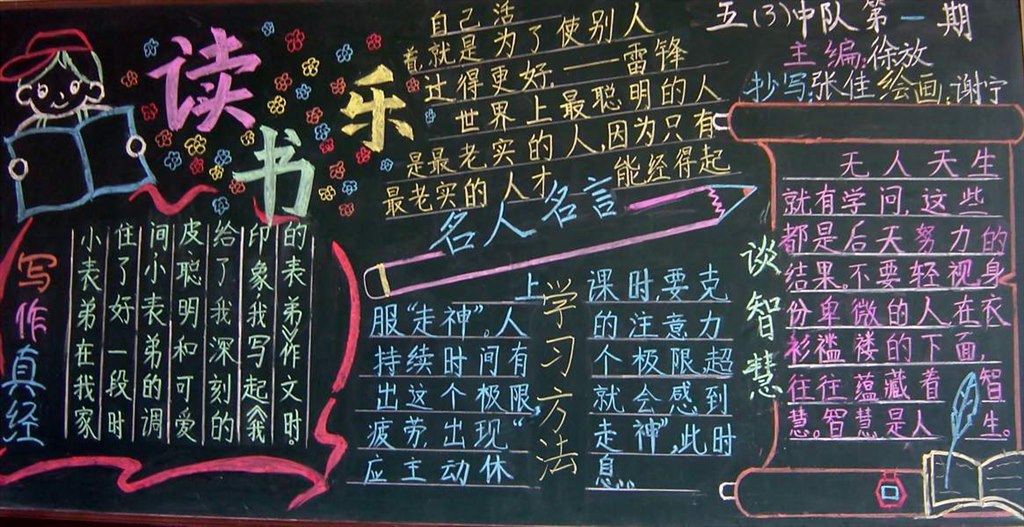 读书乐
自己活
着,就是为了使别人
过得更好.——雷锋
世界上最聪明的人
是最老实的人,因为只有
最老实的人才 能经得起
名人名言
五(3)中队第一期
主编:徐放
抄写:张佳 绘画:谢宁
写作真经
小表弟在我家
住了好一段时
间小表弟的调
皮聪明和可爱
给了我深刻的
印象我写起《我
的表弟》作文时。
学习方法
上课时,要克
服“走神”。人的注意力
持续时间有个极限,超
出这个极限,就会感到
疲劳,出现“走神”,此时
应主动休息。
谈智慧
无人天生
就有学问,这些
都是后天努力的
结果。不要轻视身
份卑微的人,在衣
衫褴褛的下面,
往往蕴藏着智
慧。智慧是人生。